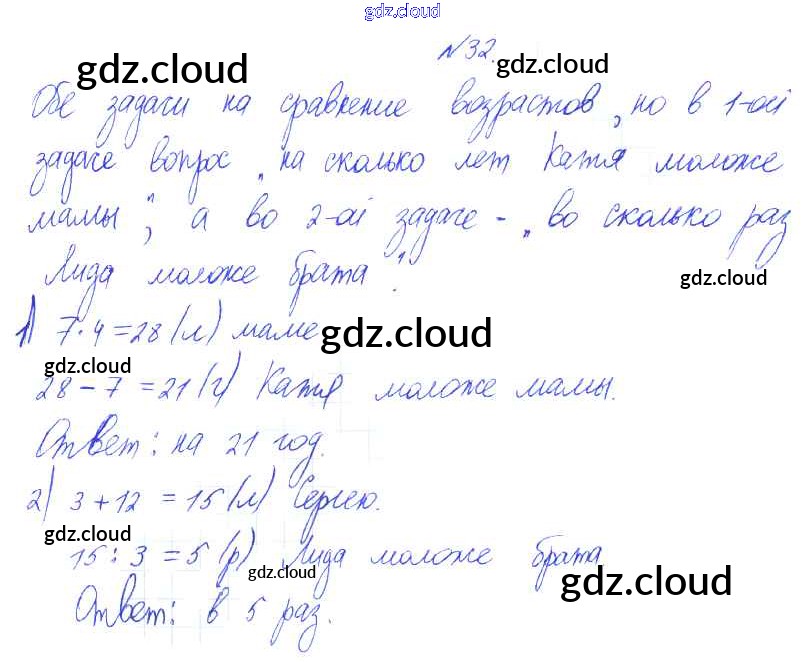 gdz.cloud
№32.
gdz.cloud gdz.cloud
Обе задачи на сравнение возрастов, но в 1-ой
gdz.cloud
задаче вопрос „на сколько лет Катя моложе
мамы", а во 2-ой задаче - „во сколько раз
Лида моложе брата".
gdz.cloud
1) 7·4=28 (л) маме
gdz.cloud
gdz.cloud
28-7=21 (г) Катя моложе мамы.
gdz.cloud
Ответ: на 21 год.
2) 3+12=15 (л) Сергею.
gdz.cloud
15:3=5 (р) Лида моложе брата
gdz.cloud gdz.cloud
Ответ: в 5 раз.